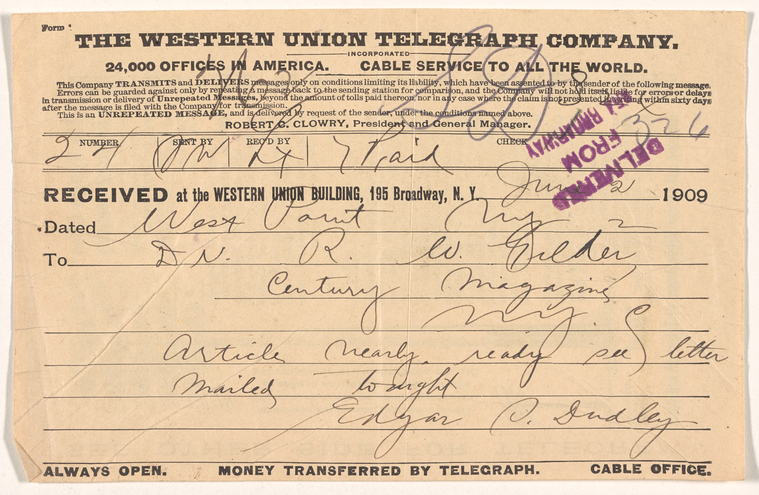 Form
THE WESTERN UNION TELEGRAPH COMPANY.
INCORPORATED
24,000 OFFICES IN AMERICA. CABLE SERVICE TO ALL THE WORLD.
This Company TRANSMITS and DELIVERS messages only on conditions limiting its liability, which have been assented to by the sender of the following message.
Errors can be guarded against only by repeating a message back to the sending station for comparison, and the Company will not hold itself liable for errors or delays
in transmission or delivery of Unrepeated Messages, beyond the amount of tolls paid thereon, nor in any case where the claim is not presented in writing within sixty days
after the message is filed with the Company for transmission.
This is an UNREPEATED MESSAGE, and is delivered by request of the sender, under the conditions named above.
ROBERT C. CLOWRY, President and General Manager.
NUMBER SENT BY REC'D BY CHECK
24 7 Paid
DELIVERED
FROM
BROADWAY
326
RECEIVED at the WESTERN UNION BUILDING, 195 Broadway, N. Y. June 2 1909
Dated West Point NY 2
To R. W. Gilder
Century Magazine
NY.
Article nearly ready see letter
mailed tonight
Edgar S. Dudley
ALWAYS OPEN. MONEY TRANSFERRED BY TELEGRAPH. CABLE OFFICE.